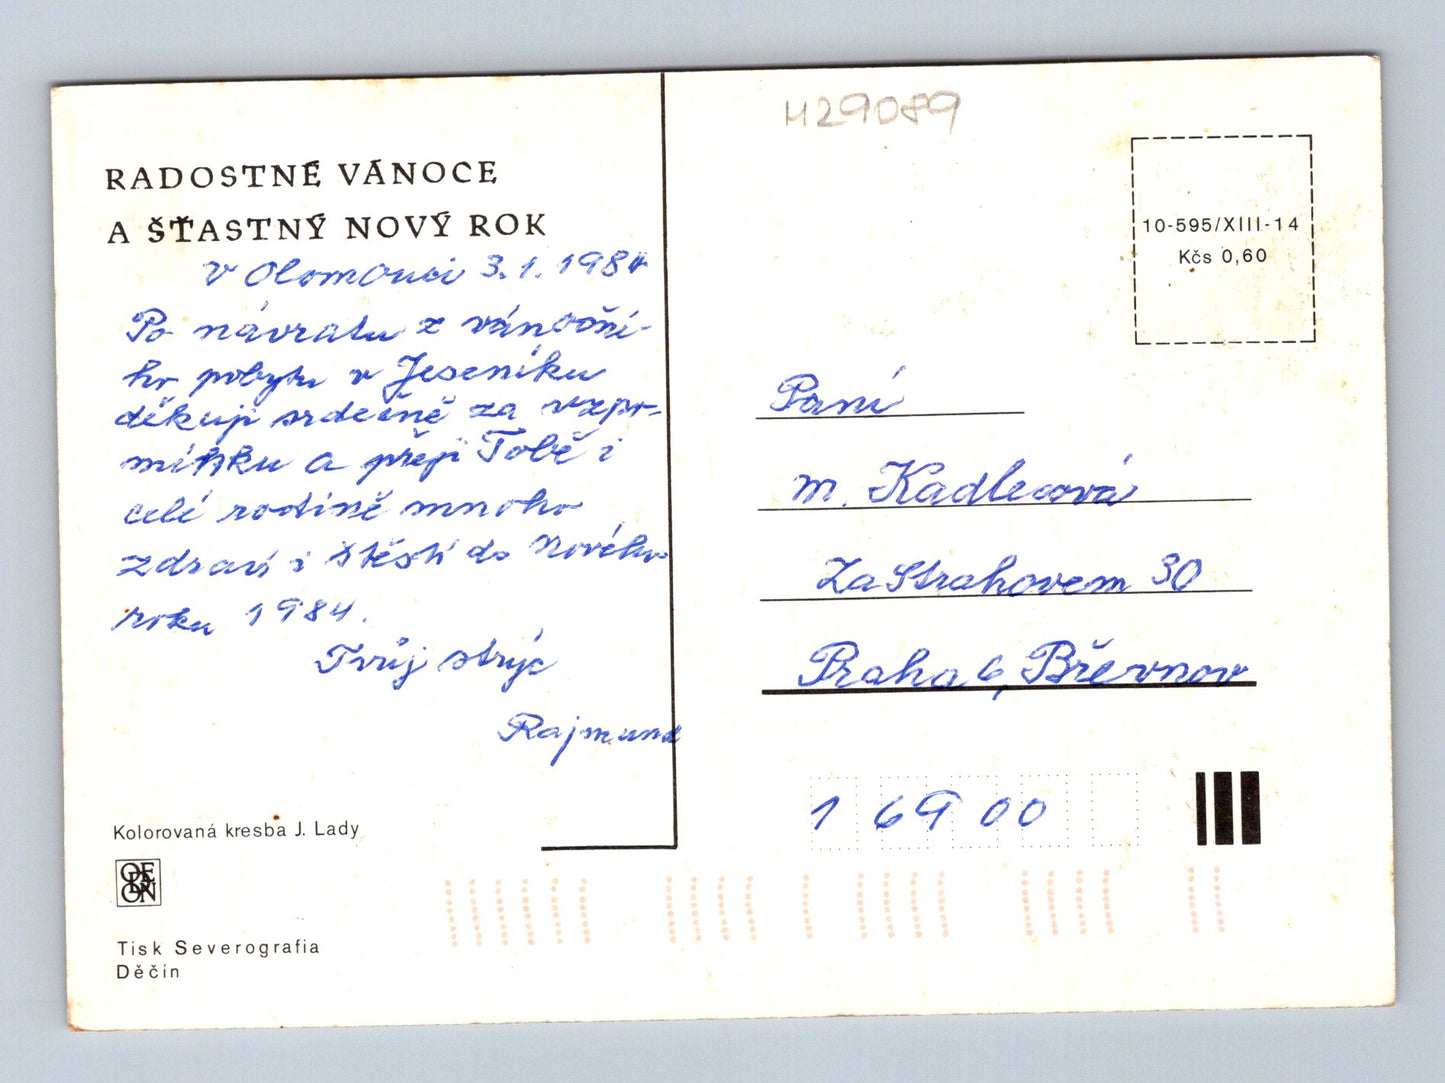 H29089
RADOSTNÉ VÁNOCE
A ŠŤASTNÝ NOVÝ ROK
V Olomouci 3.1.1984
Po návratu z vánoční-
ho pobytu v Jeseníku
děkuji srdečně za vzpo-
mínku a přeji Tobě i
celé rodině mnoho
zdraví i štěstí do Nového
roku 1984.
Tvůj strýc
Rajmund
Kolorovaná kresba J. Lady
ODEON
Tisk Severografia
Děčín
10-595/XIII-14
Kčs 0,60
Paní
M. Kadlecová
Za Strahovem 30
Praha 6, Břevnov
169 00